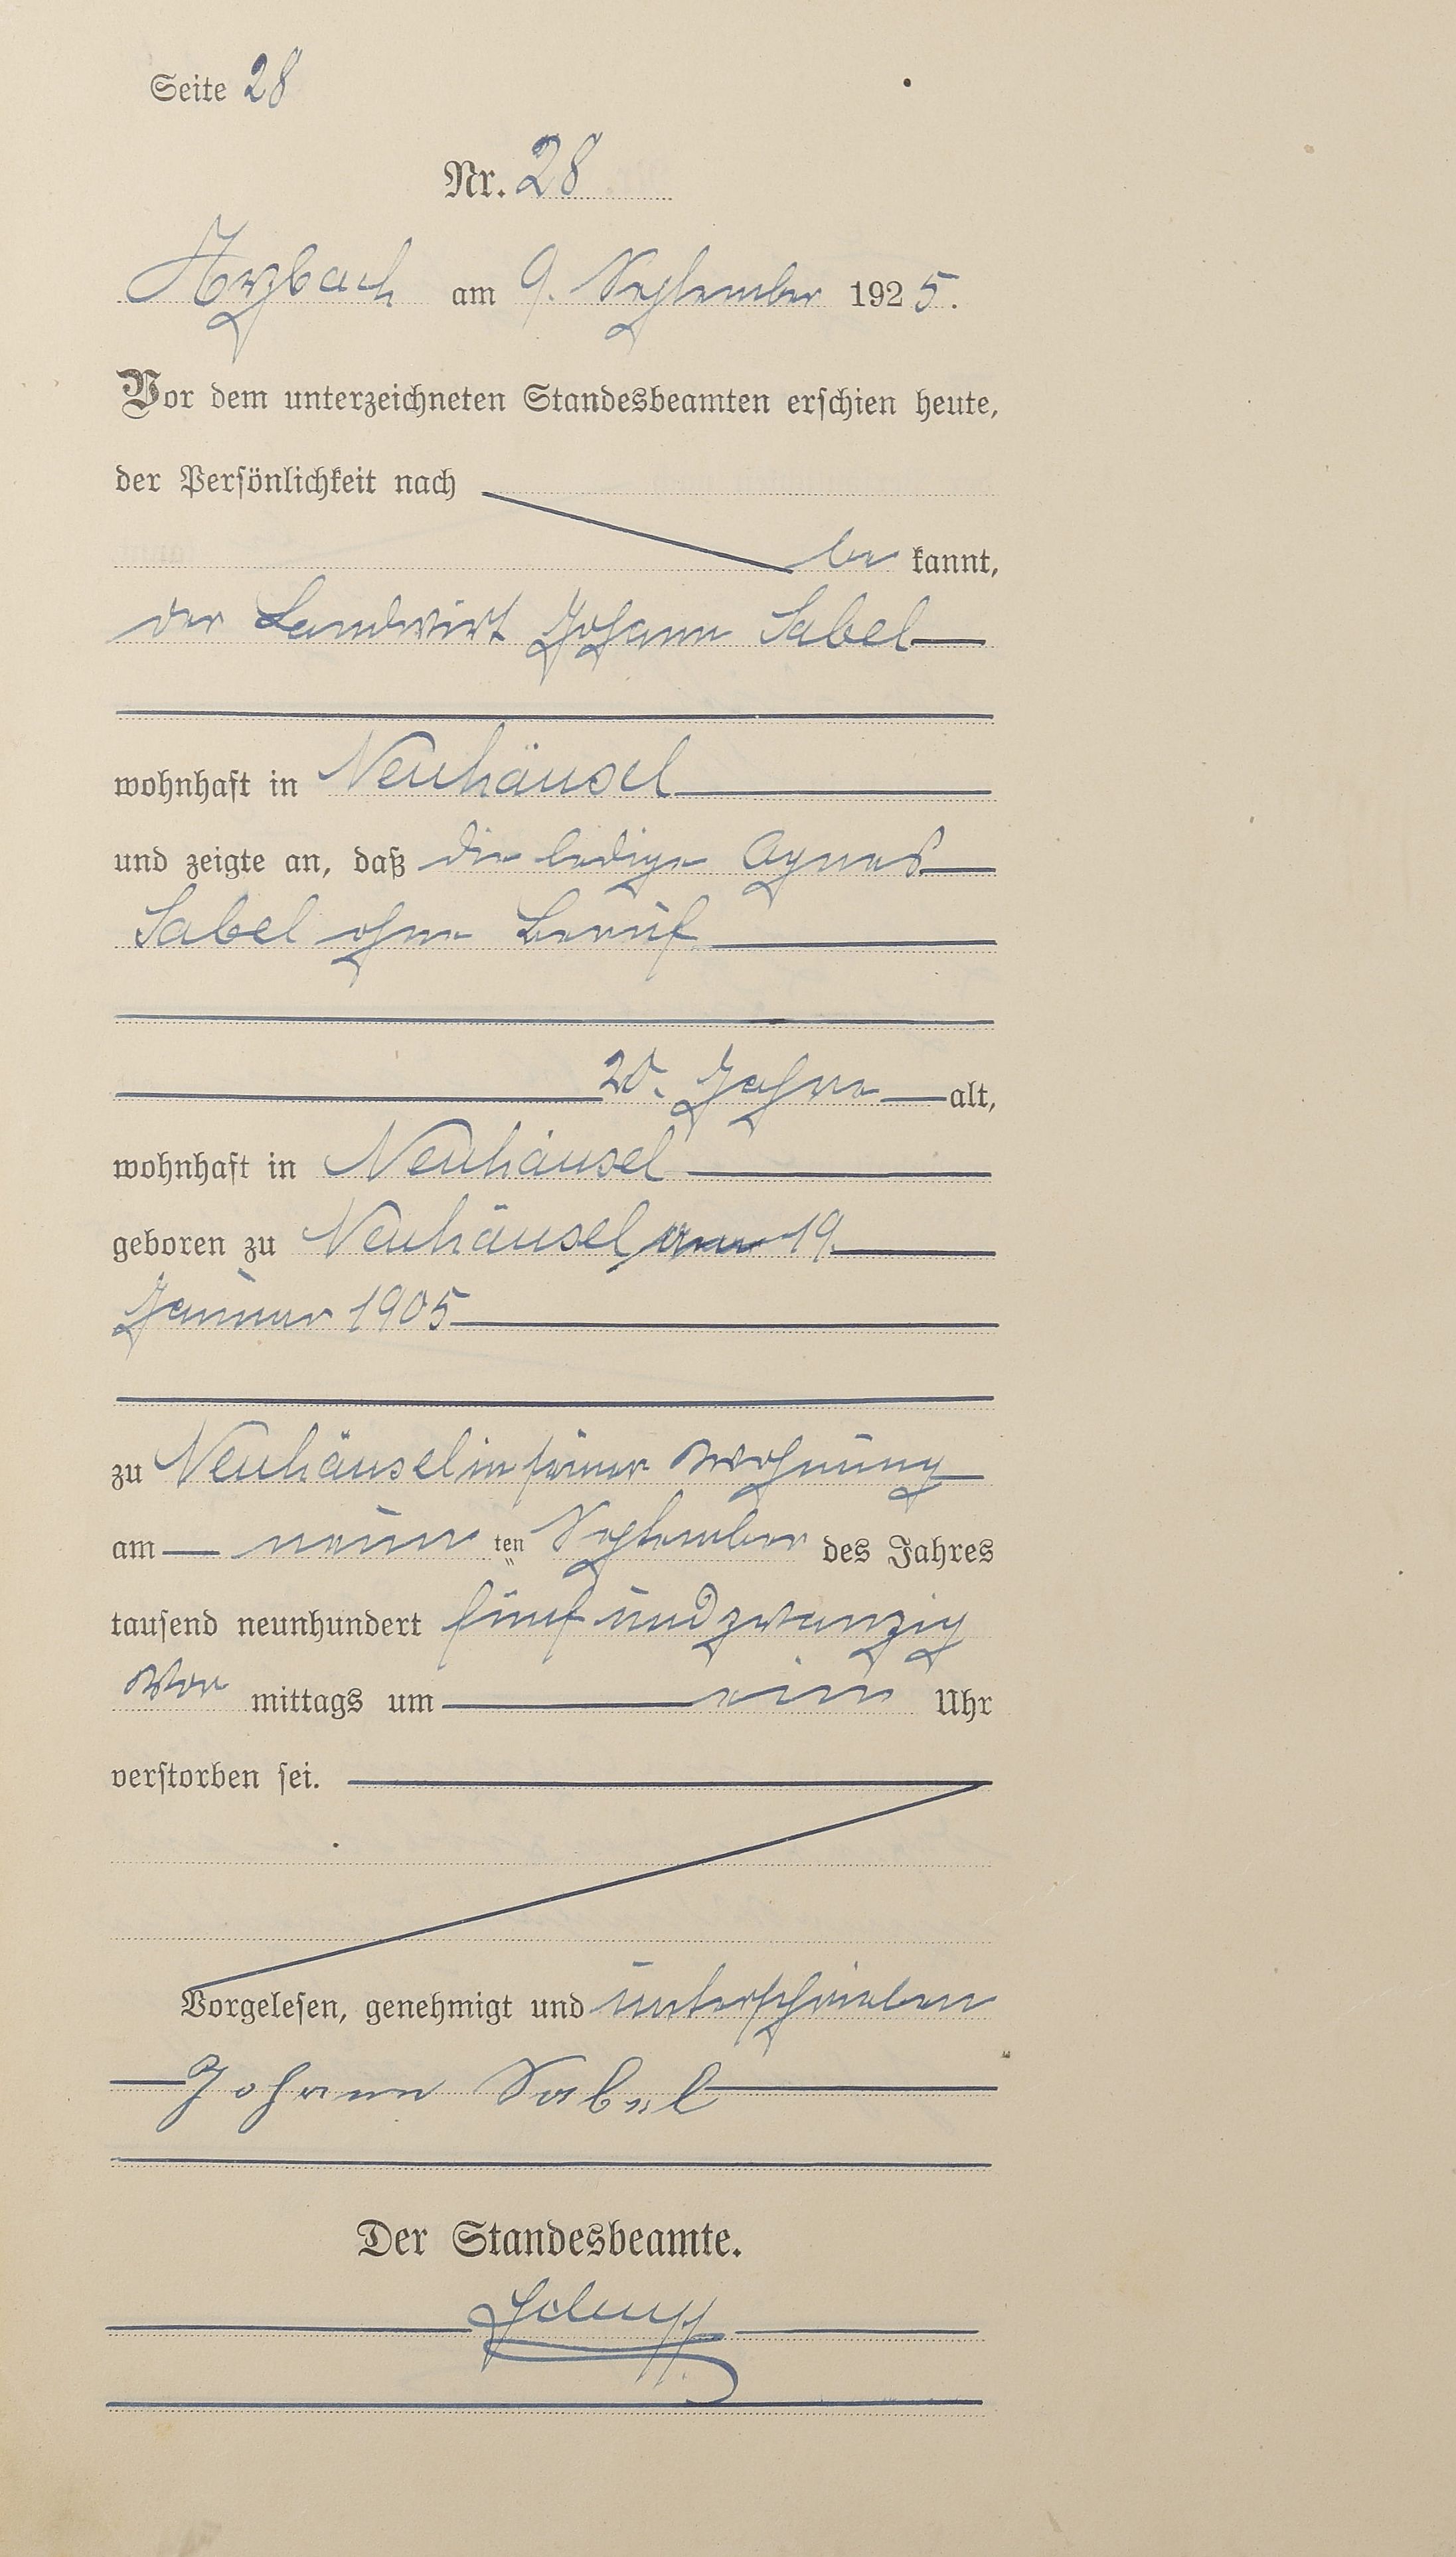 Seite 28
Nr. 28
Arzbach am 9. September 1925.
Vor dem unterzeichneten Standesbeamten erschien heute,
der Persönlichkeit nach
be kannt,
der Landwirt Johann Sabel
wohnhaft in Neuhäusel
und zeigte an, daß die ledige Agnes
Sabel ohne Beruf
20. Jahre alt,
wohnhaft in Neuhäusel
geboren zu Neuhäusel am 19.
Januar 1905
zu Neuhäusel in seiner Wohnung
am neun ten September des Jahres
tausend neunhundert fünf und zwanzig
Vor mittags um ein Uhr
verstorben sei.
Vorgelesen, genehmigt und unterschrieben
Johann Sabel
Der Standesbeamte.